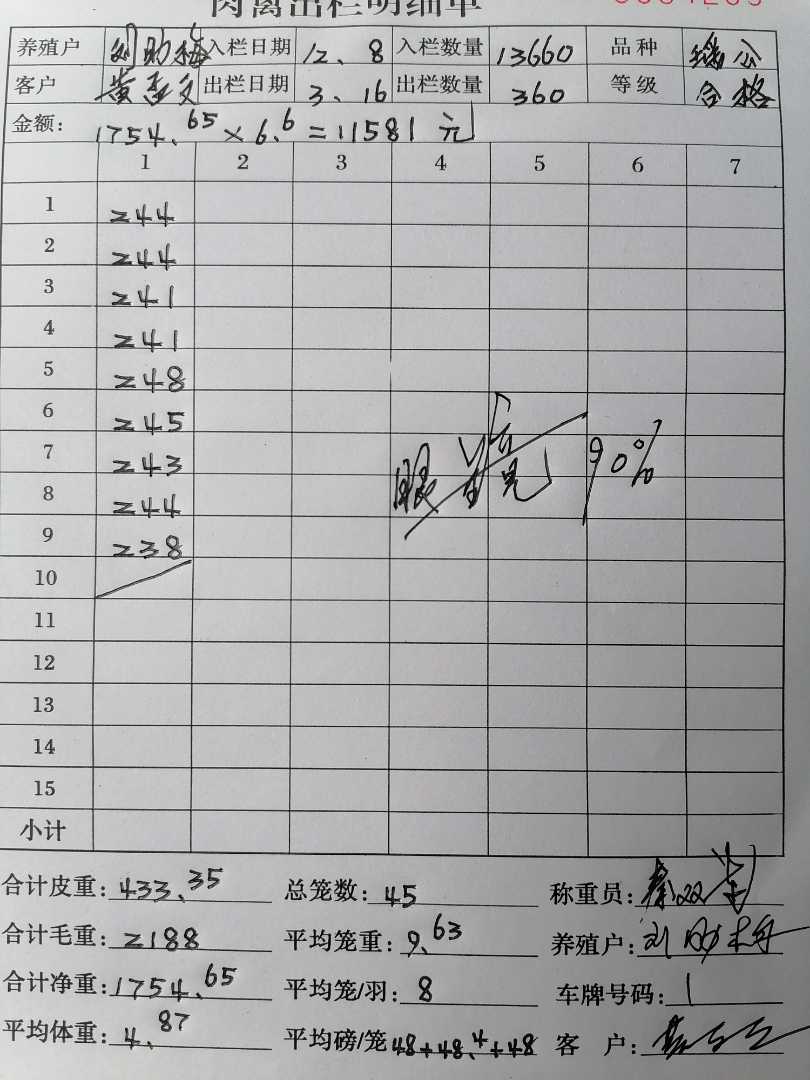 肉禽出栏明细单
养殖户 刘 入栏日期 12、8 入栏数量 13660 品种
客户 黄 出栏日期 3、16 出栏数量 360 等级 合格
金额: 1754.65 × 6.6 = 11581 元
1 2 3 4 5 6 7
1 244
2 244
3 241
4 241
5 248
6 245
7 243
8 244
9 238
10
11
12
13
14
15
90%
小计
合计皮重: 433.35 总笼数: 45 称重员: 秦双
合计毛重: 2188 平均笼重: 9.63 养殖户: 刘
合计净重: 1754.65 平均笼/羽: 8 车牌号码: 1
平均体重: 4.87 平均磅/笼 48+48.4+48 客 户: